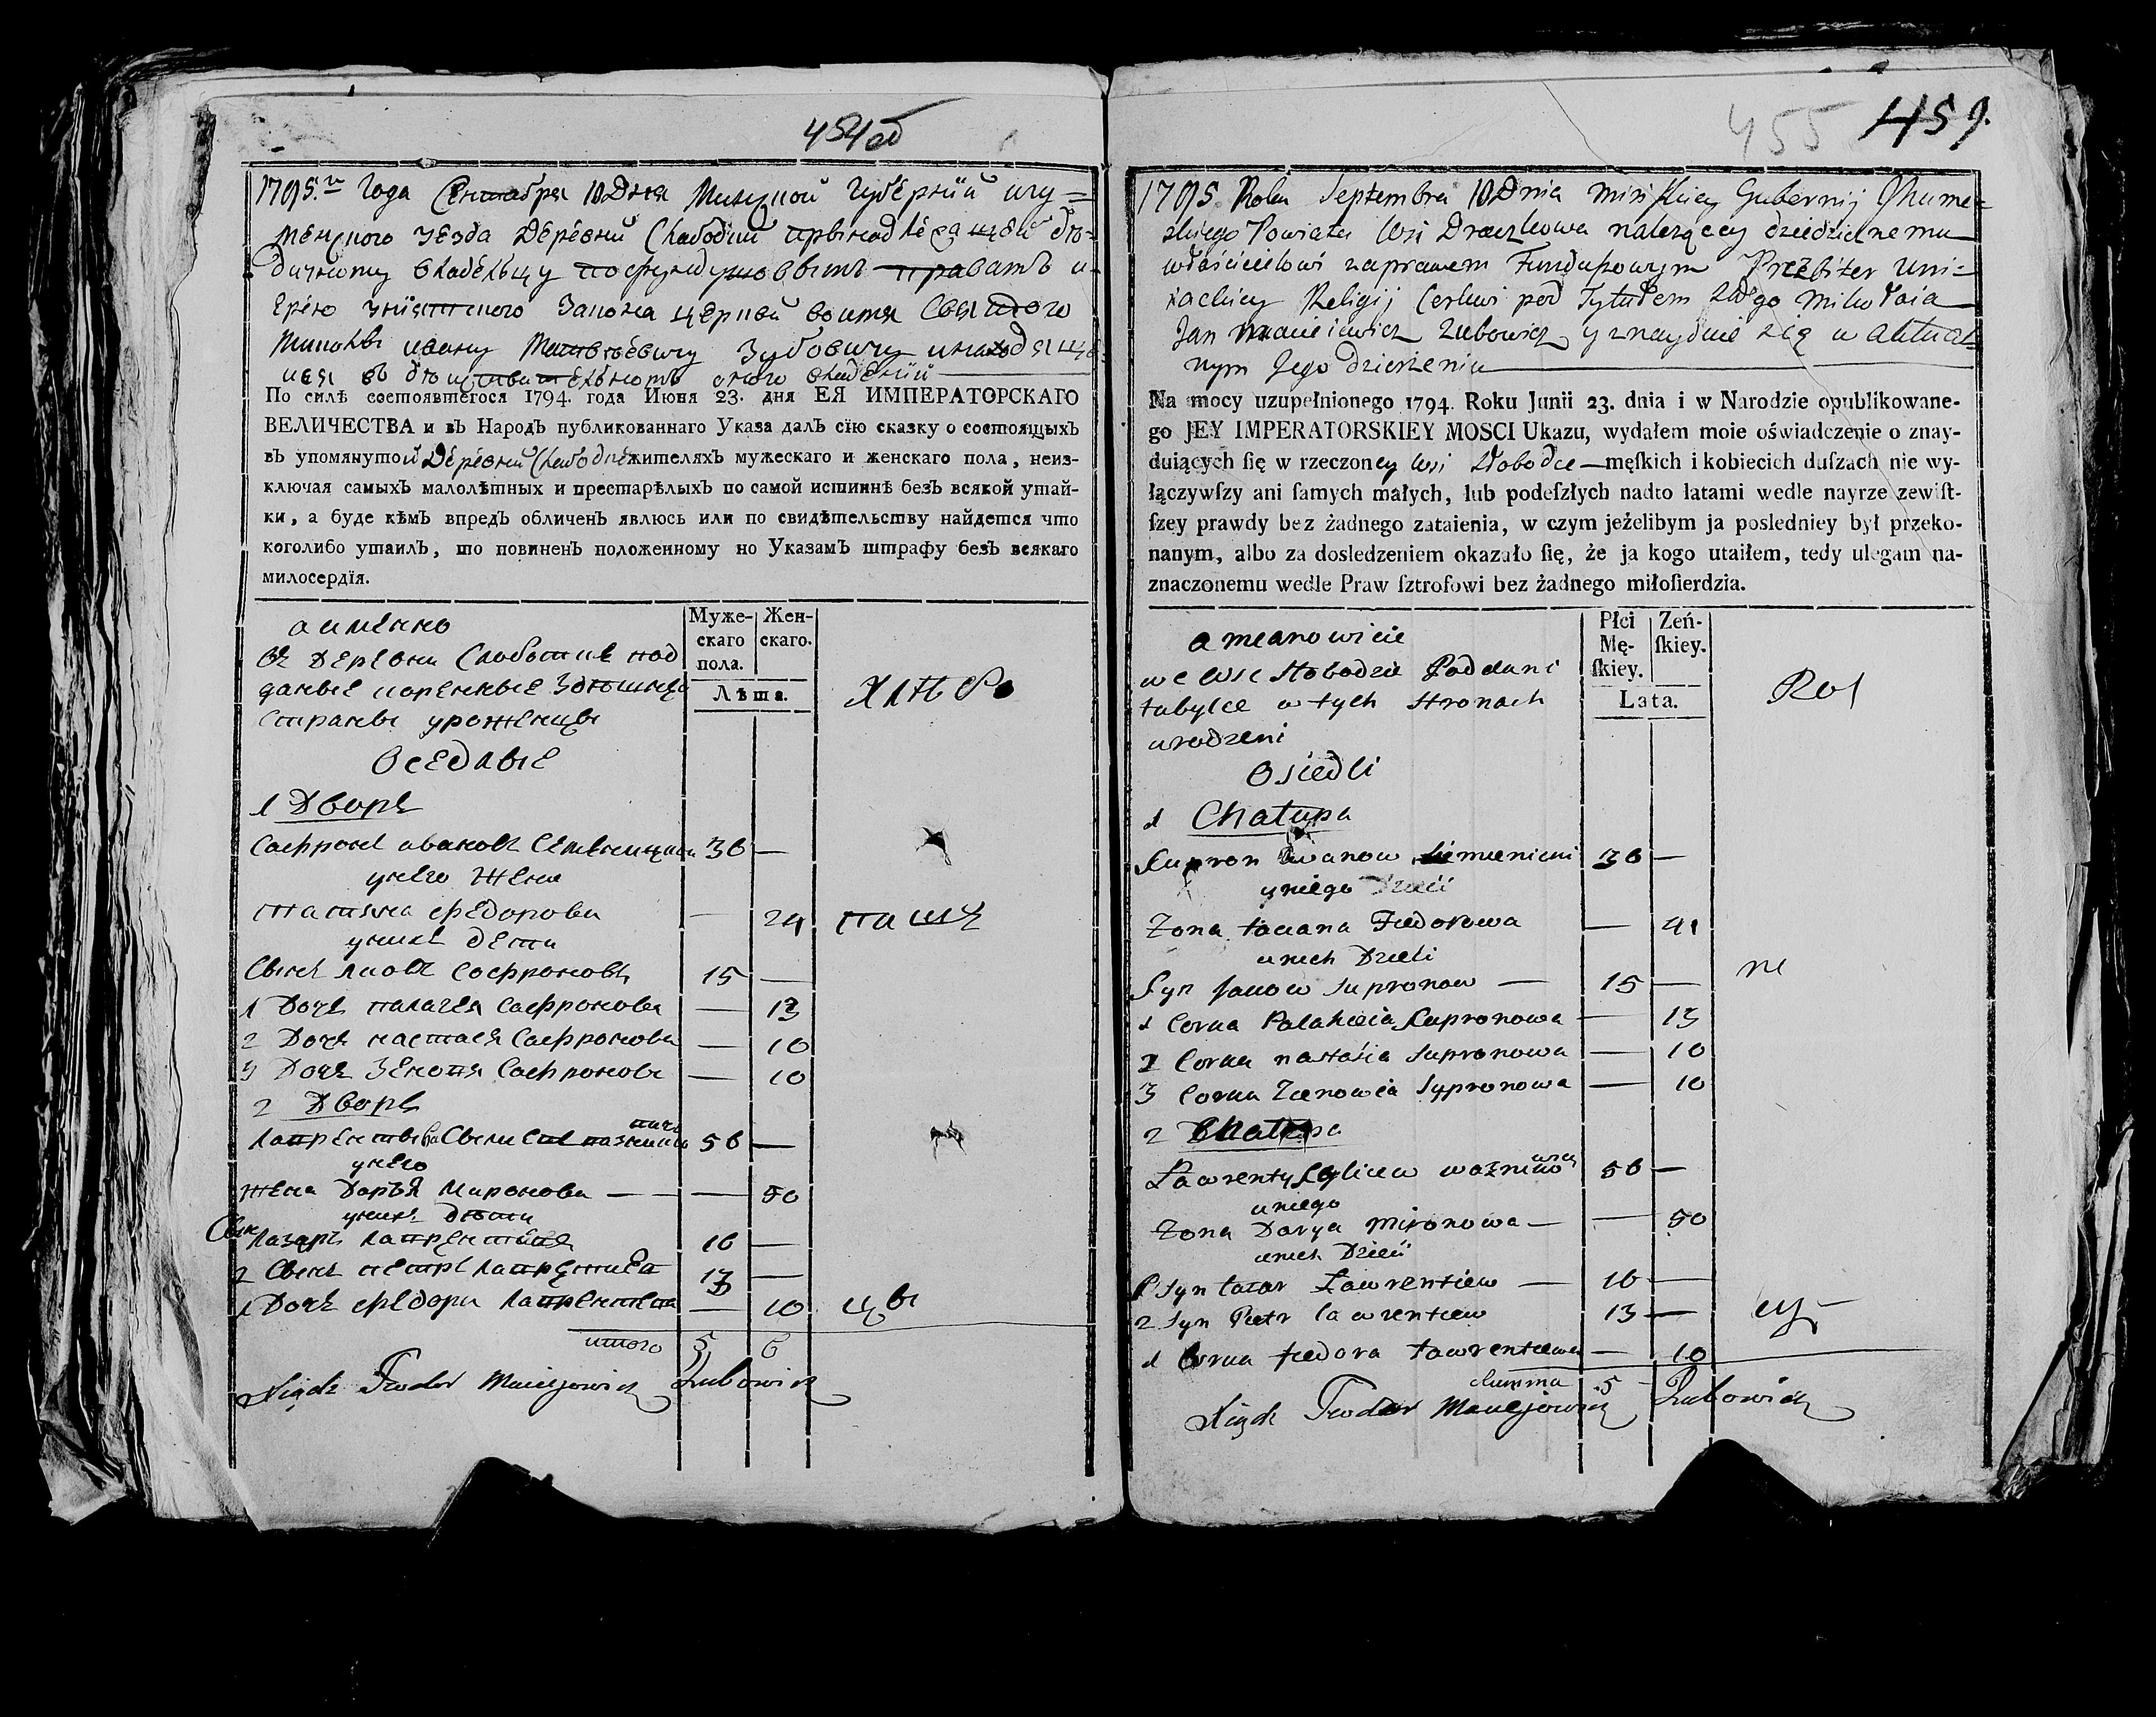 454 об
1795.го Года Сентября 10 Дня Минской Губернии игу=
менского уезда Деревни Слабодки принадлежащей дѣ=
дичному владельцу
ерею униятского Закона церкви во имя Святого
Миколы ивану Матвѣевичу Зубовичу инаходяще
По силѣ состоявшегося 1794. года Июня 23. дня ЕЯ ИМПЕРАТОРСКАГО
ВЕЛИЧЕСТВА и въ Народъ публикованнаго Указа далъ сїю сказку о состоящыхъ
въ упомянутой Деревни Слабодке жителяхъ мужескаго и женскаго пола, неиз-
ключая самыхъ малолѣтныхъ и престарѣлыхъ по самой истиннѣ безъ всякой утай-
ки, а буде кѣмъ впредь обличенъ явлюсь или по свидѣтельству найдется что
коголибо утаилъ, то повиненъ положенному по Указамъ штрафу безъ всякаго
милосердїя.
Муже-
скаго
пола.
Жен-
скаго.
Лѣта.
аименно
въ деревни Слаботке под
даные коренные здешнея
страны уроженцы
Оседлые
хлебо
1 Дворъ
Сафронъ ивановъ 36 —
унего жена
татяна федорова — 24 пашц
унихъ дети
Сынъ Сафроновъ 15 —
1 Дочь палагея Сафронова — 13
2 Дочь настася Сафронова — 10
3 Дочь Зеновя Сафронова — 10
2 Дворъ
56 —
унего
жена Дарья Миронова — — 50
унихъ дети
Сынъ Лазаръ 16 —
2 Сынъ петръ 13 —
1 Дочь федора — 10 цы
итого 5 6
Xiądz Teodor Maciejowicz Zubowicz
455 459.
1795 Roku Septembra 10 Dnia Minskiey Gubernij Jhume=
skiego Powiatu Wsi naleząccy dziedzicznemu
właścicielowi zaprawem Funduszowym Prezbiter Uni=
iackiey Religij Cerkwi pod Tytułem Mikołaia
Jan Maciejewicz Zubowicz y znayduie się w aktual=
nym Jego dzierżeniu
Na mocy uzupełnionego 1794. Roku Junii 23. dnia i w Narodzie opublikowane-
go JEY IMPERATORSKIEY MOSCI Ukazu, wydałem moie oświadczenie o znay-
duiących ſię w rzeczoney Wsi Słobodce — męſkich i kobiecich duſzach nie wy-
łączywſzy ani ſamych małych, lub podeſzłych nadto latami wedle nayrze zewiſt-
ſzey prawdy bez żadnego zataienia, w czym jeżelibym ja posledniey był przeko-
nanym, albo za dosledzeniem okazało ſię, że ja kogo utaiłem, tedy ulegam na-
znaczonemu wedle Praw ſztrofowi bez żadnego miłoſierdzia.
Płci
Mę-
ſkiey.
Zeń-
ſkiey.
Lata.
a mianowicie
we Wsi Słobodzie Poddani
tubylce w tych stronach
urodzeni
Osiedli
Rol
1 Chałupa
Supron Iwanow 36 —
uniego
Zona taciana Fiedorowa — 41
unich Dzieci
Syn Supronow — 15 — ni
1 Corka Palahieia Supronowa — 13
2 Corka nastasia Supronowa — 10
3 Corka Zienowia Sypronowa — 10
2 Chałupa
Ławrenty 56 —
uniego
Zona Darya Mironowa — — 50
unich Dzieci
1 Syn łazar Ławrentiew — 16 —
2 Syn Piotr ławrentiew 13 — cy
1 Corka fiedora Ławrentiewa — 10
Summa 5 6
Xiądz Teodor Maciejowicz Zubowicz